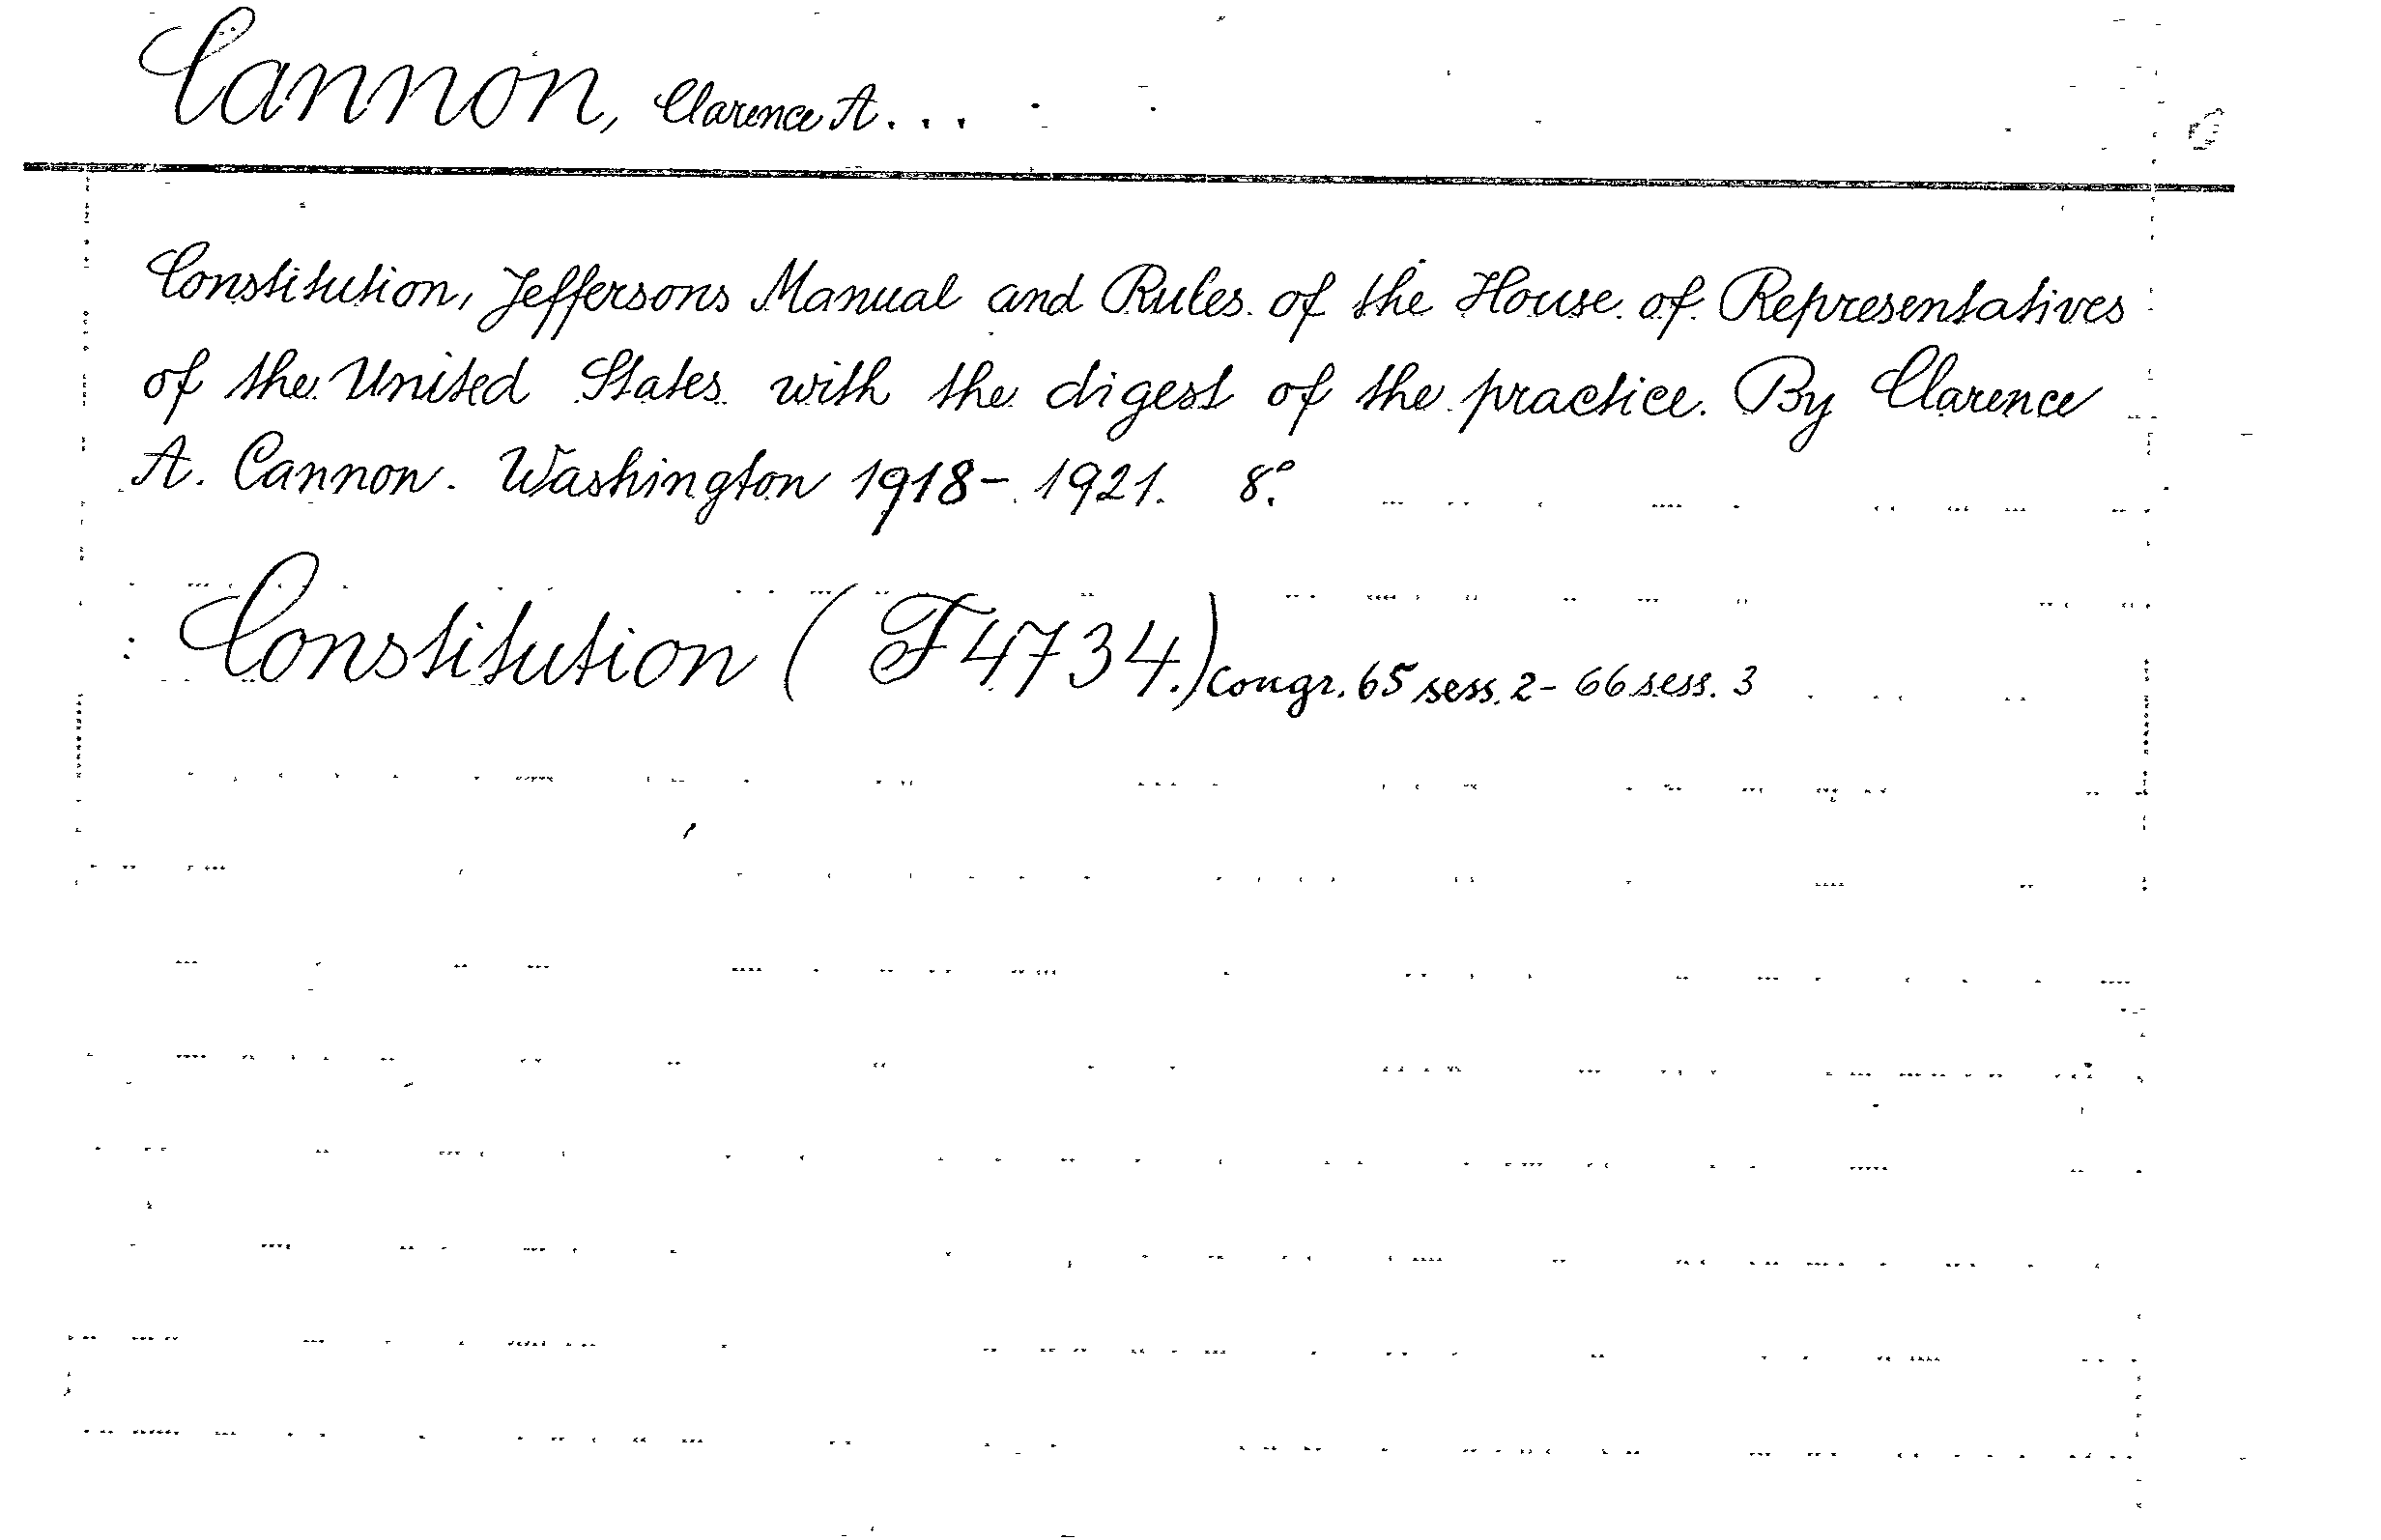 Cannon, Clarence A...
Constitution, Jeffersons Manual and Rules of the House of Representatives
of the United States with the digest of the practice. By Clarence
A. Cannon. Washington 1918-1921. 8°.
Constitution (F 4734.) Congr. 65 sess. 2 - 66 sess. 3